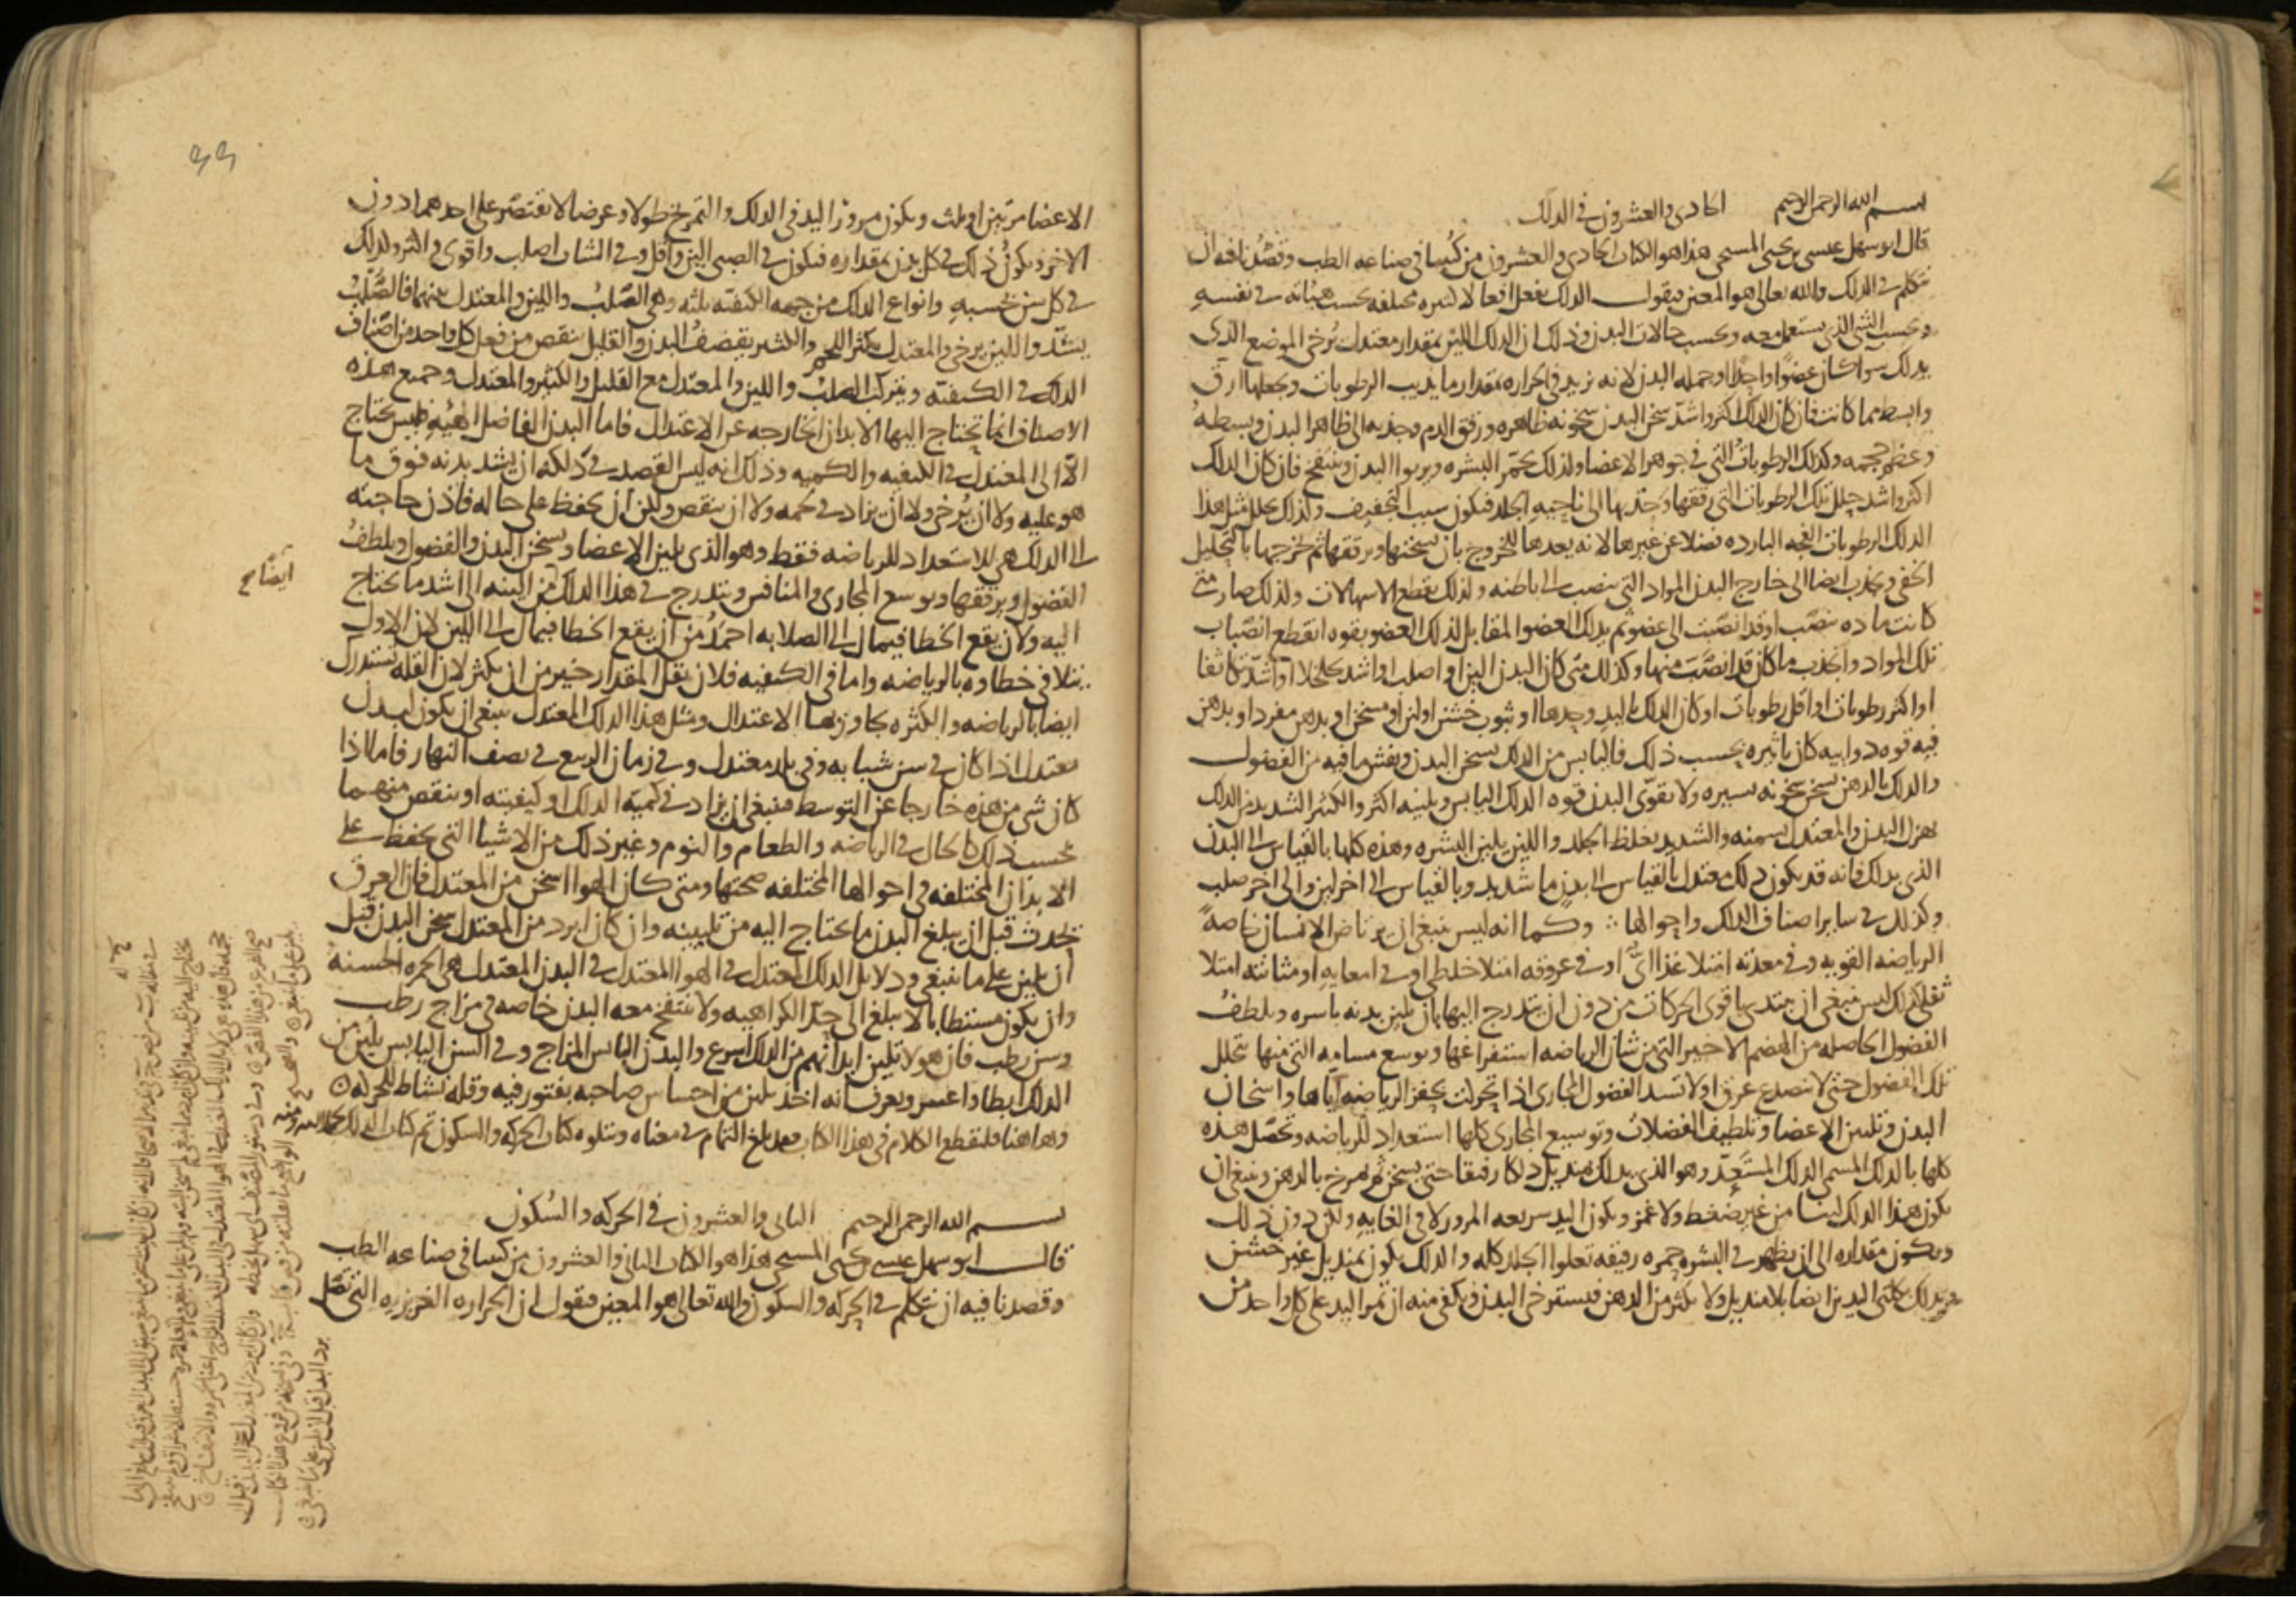 بسم الله الرحمن الرحيم الحادى والعشرون فى الدلك
قال ابو سهل عيسى بن يحيى المسيحى هذا هو الكتاب الحادى والعشرون من كتبنا فى صناعه الطب وقصدنا فيه ان
نتكلم فى الدلك والله تعالى هو المعين فنقول الدلك يفعل افعالا كثيره مختلفه بحسب هيئاته فى نفسه
وبحسب الشى الذى يستعمل معه وبحسب حالات البدن وذلك ان الدلك اللين بمقدار معتدل يرخى الموضع الذى
يدلك سوا كان عضوا واحدا او جمله البدن لانه يزيد فى الحراره بمقدار ما يذيب الرطوبات ويجعلها ارق
وابسط مما كانت فان كان الدلك اكثر واشد سخن البدن سخونه ظاهره ورقق الدم وجذبه الى ظاهر البدن وبسطه
وعظم حجمه وكذلك الرطوبات التى فى جوهر الاعضا ولذلك يحمر البشره ويربوا البدن وينتفخ فان كان الدلك
اكثر واشد حلل تلك الرطوبات التى رققها وجذبها الى ناحيه الجلد فيكون سبب التجفيف ولذلك يحلل مثل هذا
الدلك الرطوبات الفجه البارده فضلا عن غيرها لانه يعدها للخروج بان يسخنها ويرققها ثم يخرجها بالتحليل
الخفى ويجذب ايضا الى خارج البدن المواد التى تنصب الى باطنه ولذلك يقطع الاسهالات ولذلك صار متى
كانت ماده تنصب او قد انصبت الى عضو ثم يدلك العضو المقابل لذلك العضو بقوه انقطع انصباب
تلك المواد وانجذب ما كان قد انصب منها وكذلك متى كان البدن الين او اصلب او اشد تخلخلا او اشد تكاثفا
او اكثر رطوبات او اقل رطوبات او كان الدلك باليد وحدها او بثوب خشن او لين او مسخن او بدهن مفرد او بدهن
فيه قوه دوائيه كان تاثيره بحسب ذلك فاليابس من الدلك يسخن البدن ويفش ما فيه من الفضول
والدلك بالدهن يسخن سخونه يسيره ولا يقوى البدن قوه الدلك اليابس ويلينه اكثر والكثير الشديد من الدلك
يهزل البدن والمعتدل يسمنه والشديد يغلظ الجلد واللين يلين البشره وهذه كلها بالقياس الى البدن
الذى يدلك فانه قد يكون دلك معتدل بالقياس الى بدن ما شديد وبالقياس الى اخر لين والى اخر صلب
وكذلك فى سائر اصناف الدلك واحوالها وكما انه ليس ينبغى ان يرتاض الانسان خاصة
الرياضه القويه وفى معدته امتلا غذائى او فى عروقه امتلا خلطى او فى امعايه او مثانته امتلا
ثفلى كذلك ليس ينبغى ان يبتدى باقوى الحركات من دون ان يتدرج اليها بان يلين بدنه باسره ويلطف
الفضول الحاصله من الهضم الاخير التى من شان الرياضه استفراغها ويوسع مسامه التى منها تتحلل
تلك الفضول حتى لا تنصدع عرق او لا تسد الفضول المجارى اذا تحركت بحفز الرياضه اياها واسخان
البدن وتليين الاعضا وتلطيف الفضلات وتوسيع المجارى كلها استعداد للرياضه وتحصل هذه
كلها بالدلك المسمى الدلك المستعد وهو الذى يدلك بمنديل دلكا رفيقا حتى يسخن ثم يمرخ بالدهن وينبغى ان
يكون هذا الدلك لينا من غير ضغط ولا غمز ويكون اليد سريعه المرور لا فى الغايه ولكن دون ذلك
ويكون مقداره الى ان يظهر فى البشره حمره رقيقه تعلوا الجلد كله والدلك يكون بمنديل غير خشن
ويدلك بكلتى اليدين ايضا بلا منديل ولا يكثر من الدهن فيسترخى البدن ويكفى منه ان تمر اليد على كل واحد من
الاعضا مرتين او ثلث ويكون مرور اليد فى الدلك والتمريخ طولا وعرضا لا تقتصر على احدهما دون
الاخر ويكون ذلك فى كل بدن بمقداره فيكون فى الصبى الين واقل وفى الشاب اصلب واقوى واكثر وكذلك
فى كل سن بحسبه وانواع الدلك من جهه الكيفيه ثلثه وهى الصلب واللين والمعتدل بينهما فالصلب
يشد واللين يرخى والمعتدل يكثر اللحم والكثير يقضف البدن والقليل ينقص من فعل كل واحد من اصناف
الدلك فى الكيفيه ويتركب الصلب واللين والمعتدل مع القليل والكثير والمعتدل وجميع هذه
الاصناف انما تحتاج اليها الابدان الخارجه عن الاعتدال فاما البدن الفاضل الهيئه فليس يحتاج
الا الى المعتدل فى الكيفيه والكميه وذلك انه ليس القصد فى دلكه ان يشد بدنه فوق ما
هو عليه ولا ان يرخى ولا ان يزاد فى لحمه ولا ان ينقص ولكن ان يحفظ على حاله فاذن حاجته
الى الدلك هى للاستعداد للرياضه فقط وهو الذى يلين الاعضا ويسخن البدن والفضول ويلطف
الفضول ويرققها ويوسع المجارى والمنافس ويتدرج فى هذا الدلك من الينه الى اشد ما يحتاج
اليه ولان يقع الخطا فيمال الى الصلابه احمد من ان يقع الخطا فيمال الى اللين لان الاول
يتلافى خطاوه بالرياضه واما فى الكميه فلان يقل المقدار خير من ان يكثر لان القله تستدرك
ايضا بالرياضه والكثره يجاوز بها الاعتدال ومثل هذا الدلك المعتدل ينبغى ان يكون لبدن
معتدل اذا كان فى سن شبابه وفى بلد معتدل وفى زمان الربيع فى نصف النهار فاما اذا
كان شى من هذه خارجا عن التوسط فينبغى ان يزاد فى كميه الدلك او كيفيته او ينقص منهما
بحسب ذلك كالحال فى الرياضه والطعام والنوم وغير ذلك من الاشيا التى يحفظ على
الابدان المختلفه فى احوالها المختلفه صحتها ومتى كان الهوا اسخن من المعتدل فان العرق
يحدث قبل ان يبلغ البدن ما يحتاج اليه من تليينه وان كان ابرد من المعتدل سخن البدن قبل
ان يلين على ما ينبغى ودلايل الدلك المعتدل فى الهوا المعتدل فى البدن المعتدل هى الحمره الحسنه
وان يكون مستطابا لا يبلغ الى حد الكراهيه ولا ينتفخ معه البدن خاصه فى مزاج رطب
وسن رطب فان هولا تلين ابدانهم من الدلك اسرع والبدن اليابس المزاج وفى السن اليابس يلين من
الدلك ابطا واعسر ويعرف انه اخذ يلين من احساس صاحبه بفتور فيه وقله نشاط للحركه
وهاهنا فلنقطع الكلام فى هذا الكتاب فقد بلغ التمام فى معناه ويتلوه كتاب الحركه والسكون تم كتاب الدلك
بسم الله الرحمن الرحيم الثانى والعشرون فى الحركه والسكون
قال ابو سهل عيسى بن يحيى المسيحى هذا هو الكتاب الثانى والعشرون من كتبنا فى صناعه الطب
وقصدنا فيه ان نتكلم فى الحركه والسكون والله تعالى هو المعين فنقول ان الحراره الغريزيه التى